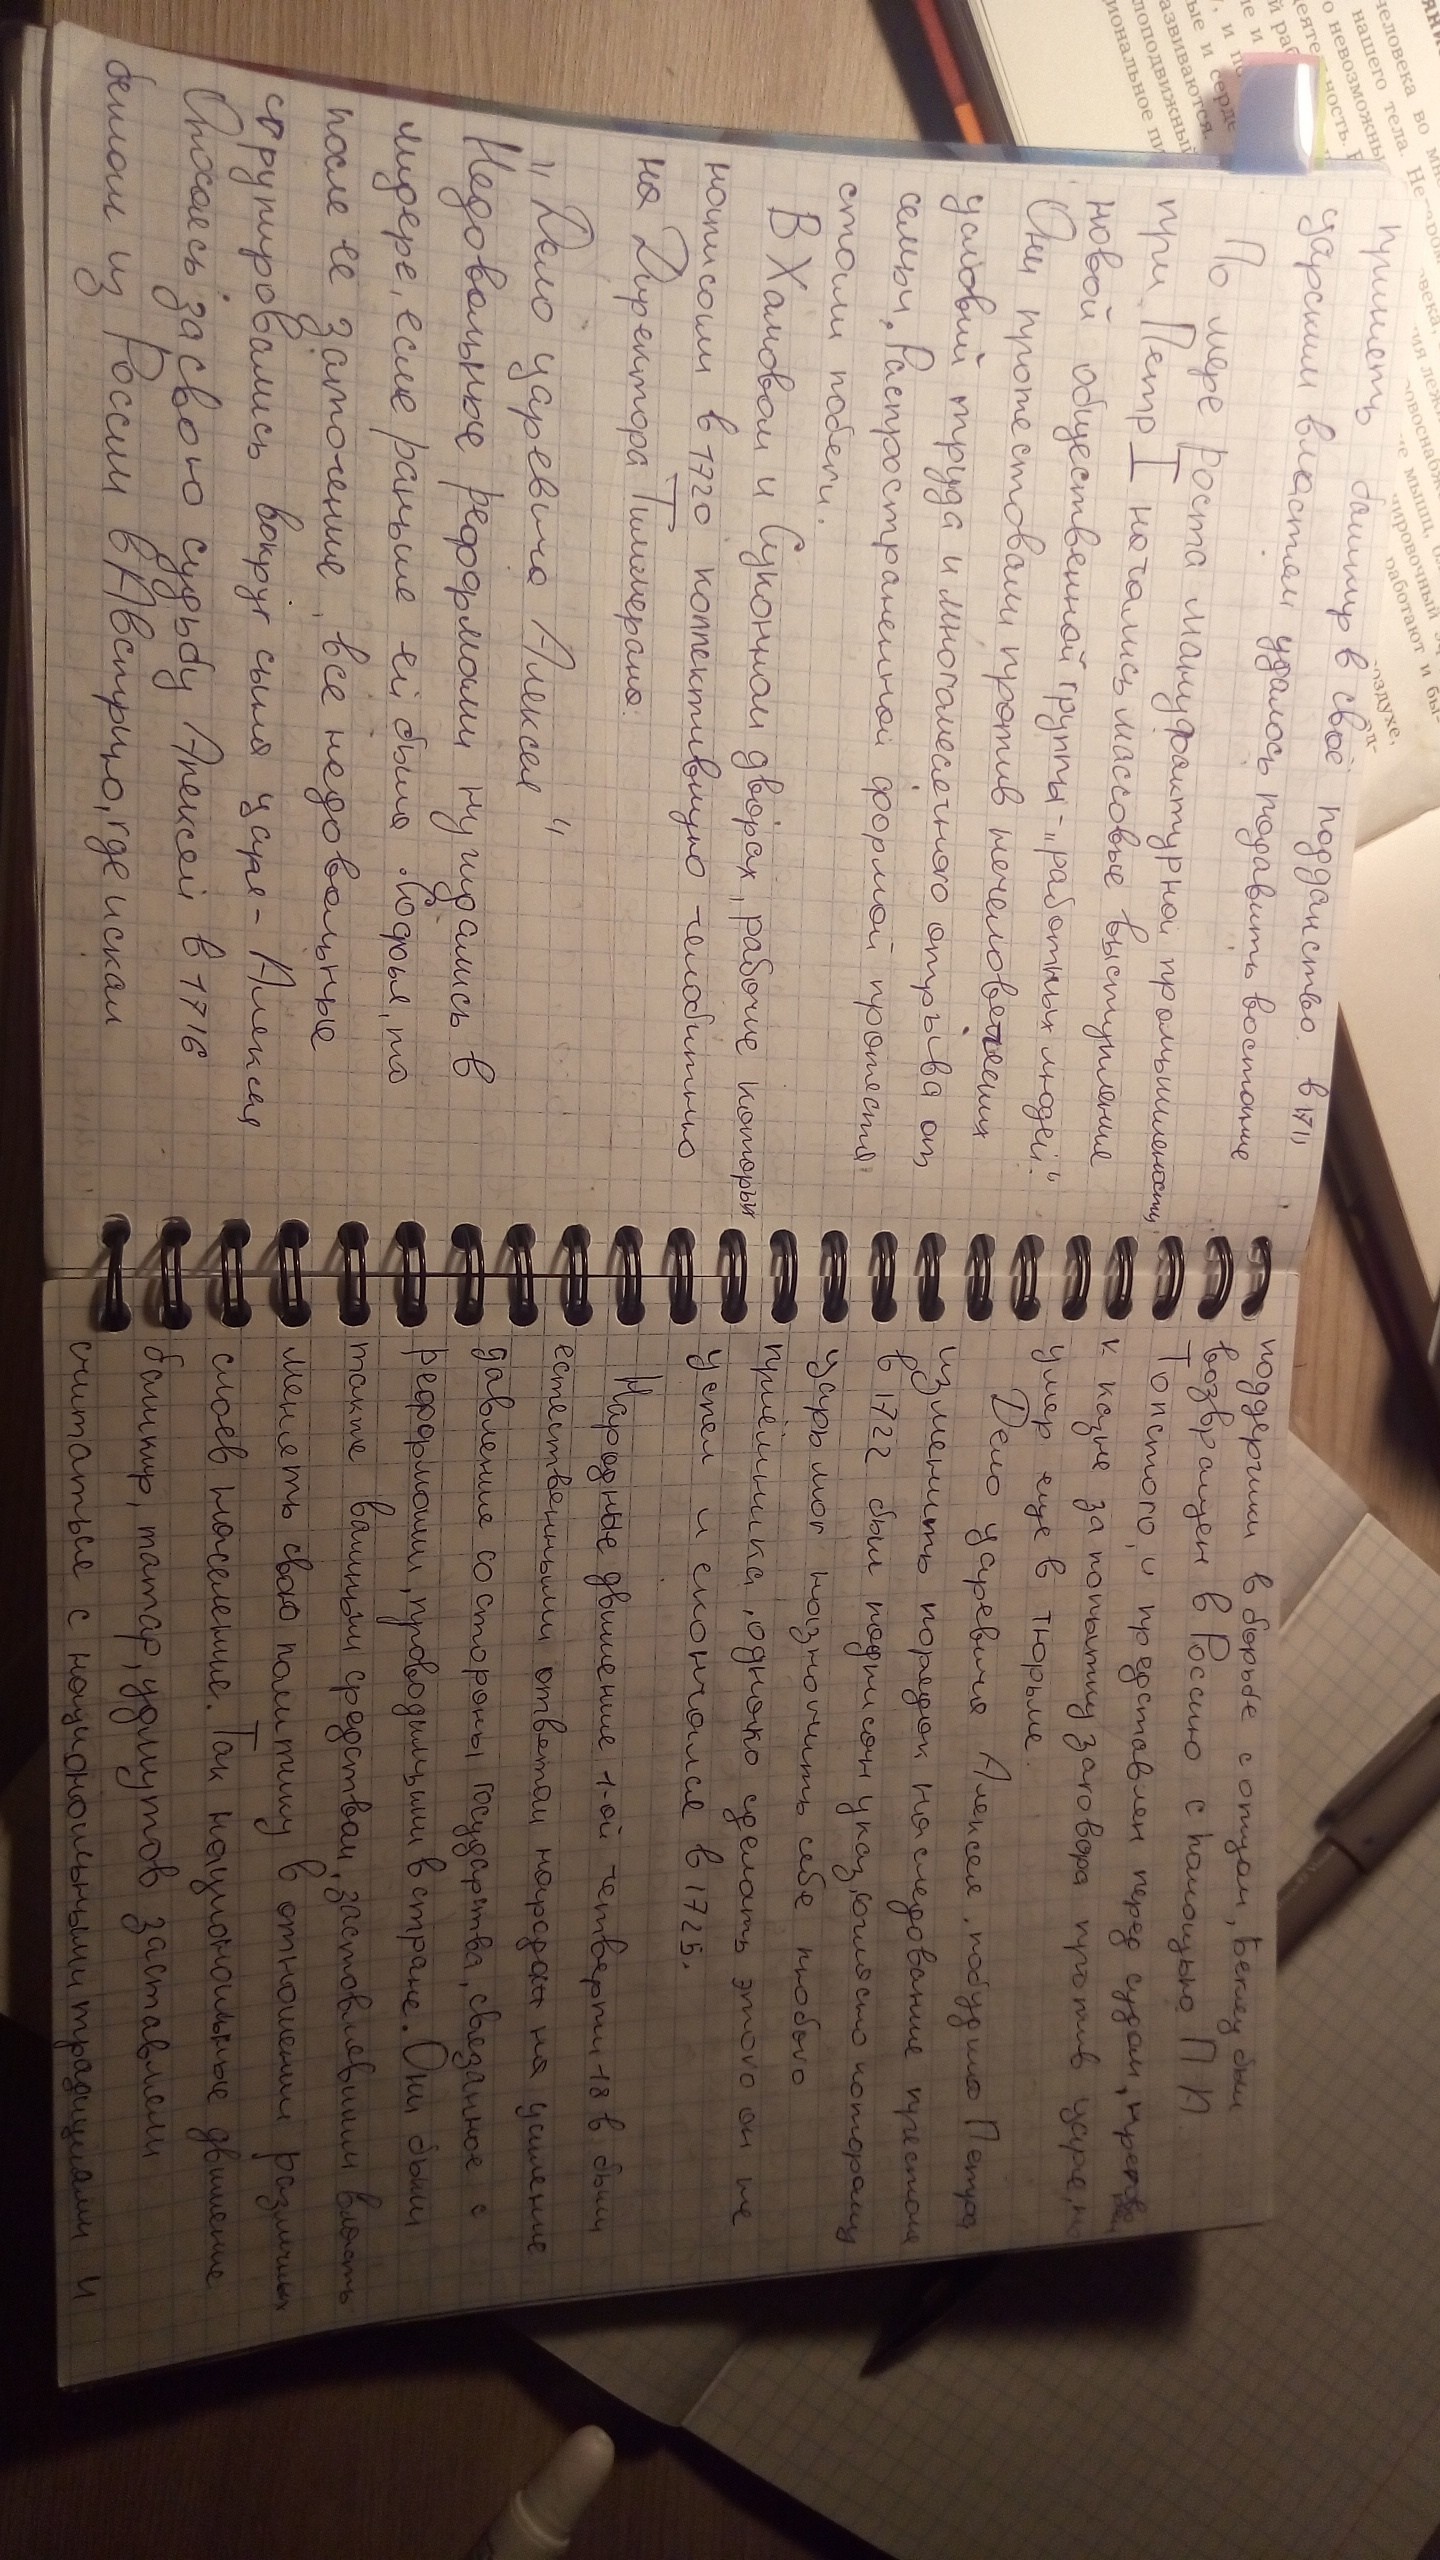 принять башкир в своё подданство. в 1711
царским властям удалось подавить востание
По мере роста мануфактурной промышлености
при Петр I начались массовые выступления
новой общественной группы - „работных людей“.
Они протестовали против нечеловеческих
условий труда и многомесячного отрыва от
семьи. Распространенной формой протеста
стали побеги.
В Хамовом и Суконном дворах, рабочие которых
написали в 1720 коллективную челобитную
на Директора Тиммермана.
„Дело царевича Алексея“
Недовольные реформами нуждались в
лидере, если раньше ей была Софья, то
после её заточения, все недовольные
сгрупировались вокруг сына царя - Алексея
Опасаясь за свою судьбу Алексей в 1716
бежал из России в Австрию, где искал
поддержки в борьбе с отцом, Беглец был
возвращен в Россию с помощью П
Толстого, и представлен перед судом,
к казне за попытку заговора против царя, н
умер еще в тюрьме.
Дело царевича Алексея, побудило Петра
изменить порядок наследование престола
в 1722 был подписан указ, согласно которому
царь мог назначить себе любого
приёмника, однако сделать этого он не
успел и скончался в 1725.
Народные движение 1-ой четверти 18 в были
естественными ответом народом на усиление
давления со стороны государства, связанное с
реформами, проводимыми в стране. Они были
также важным средством, заставлявшим власть
менять свою политику в отношении различных
слоев населения. Так национальные движение
башкир, татар, удмутов заставляли
считаться с национальными традициями и
человека во мно
нашего тела. Не
о невозможны
ность.
развиваются.
лоподвижный
иональное пи
работают и бы-
оздухе,